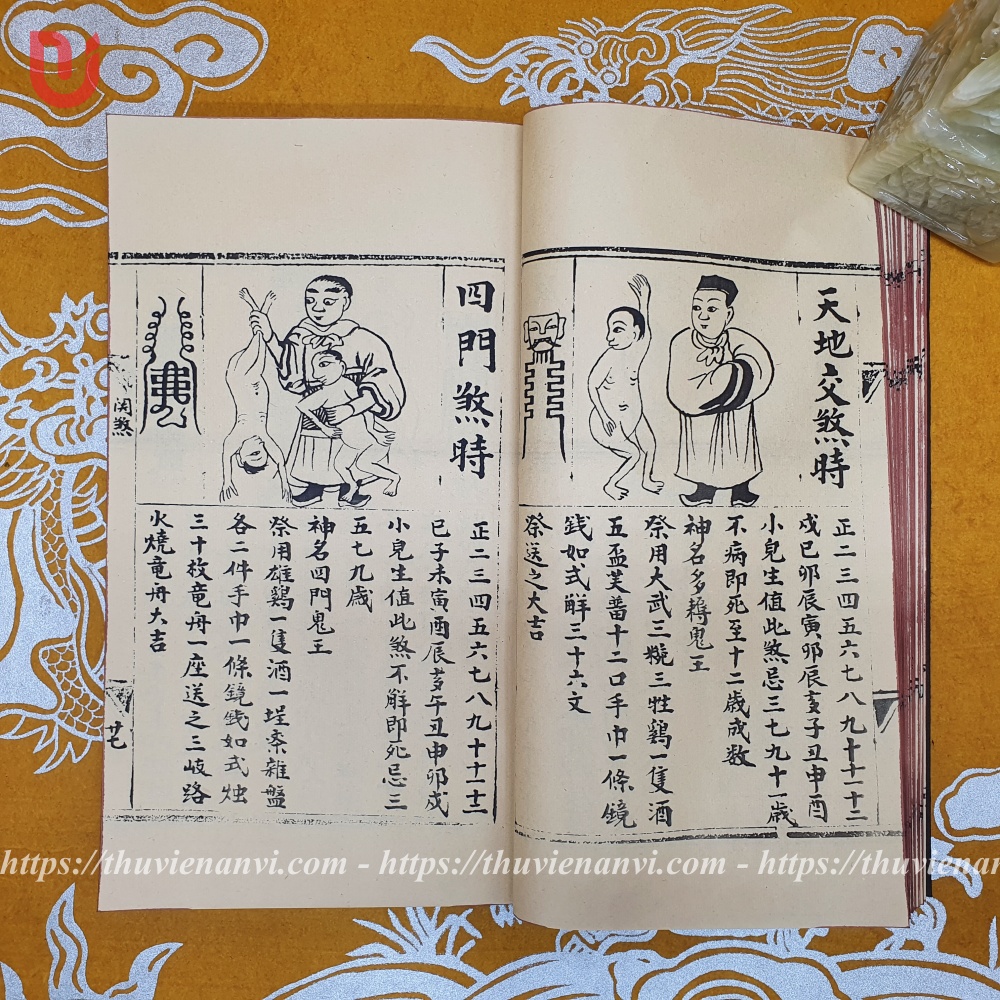 天地交煞時
正二三四五六七八九十十一十二
戌巳卯辰寅卯辰亥子丑申酉
小皃生值此煞忌三七九十一歳
不病即死至十二歳成数
神名多耨鬼王
祭用大武三㼝三牲鷄一隻酒
五盃芙蕾十二口手巾一條鏡
銭如式解三十六文
祭送之大吉
四門煞時
正二三四五六七八九十十一十二
巳子未寅酉辰亥午丑申卯戌
小皃生值此煞不解即死忌三
五七九歳
神名四門鬼王
祭用雄鷄一隻酒一埕索雜盤
各二件手巾一條鏡銭如式烛
三十枚竜舟一座送之三岐路
火燒竜舟大吉
関煞
廿七
https://thuvienanvi.com - https://thuvienanvi.com - https://thuvienanv